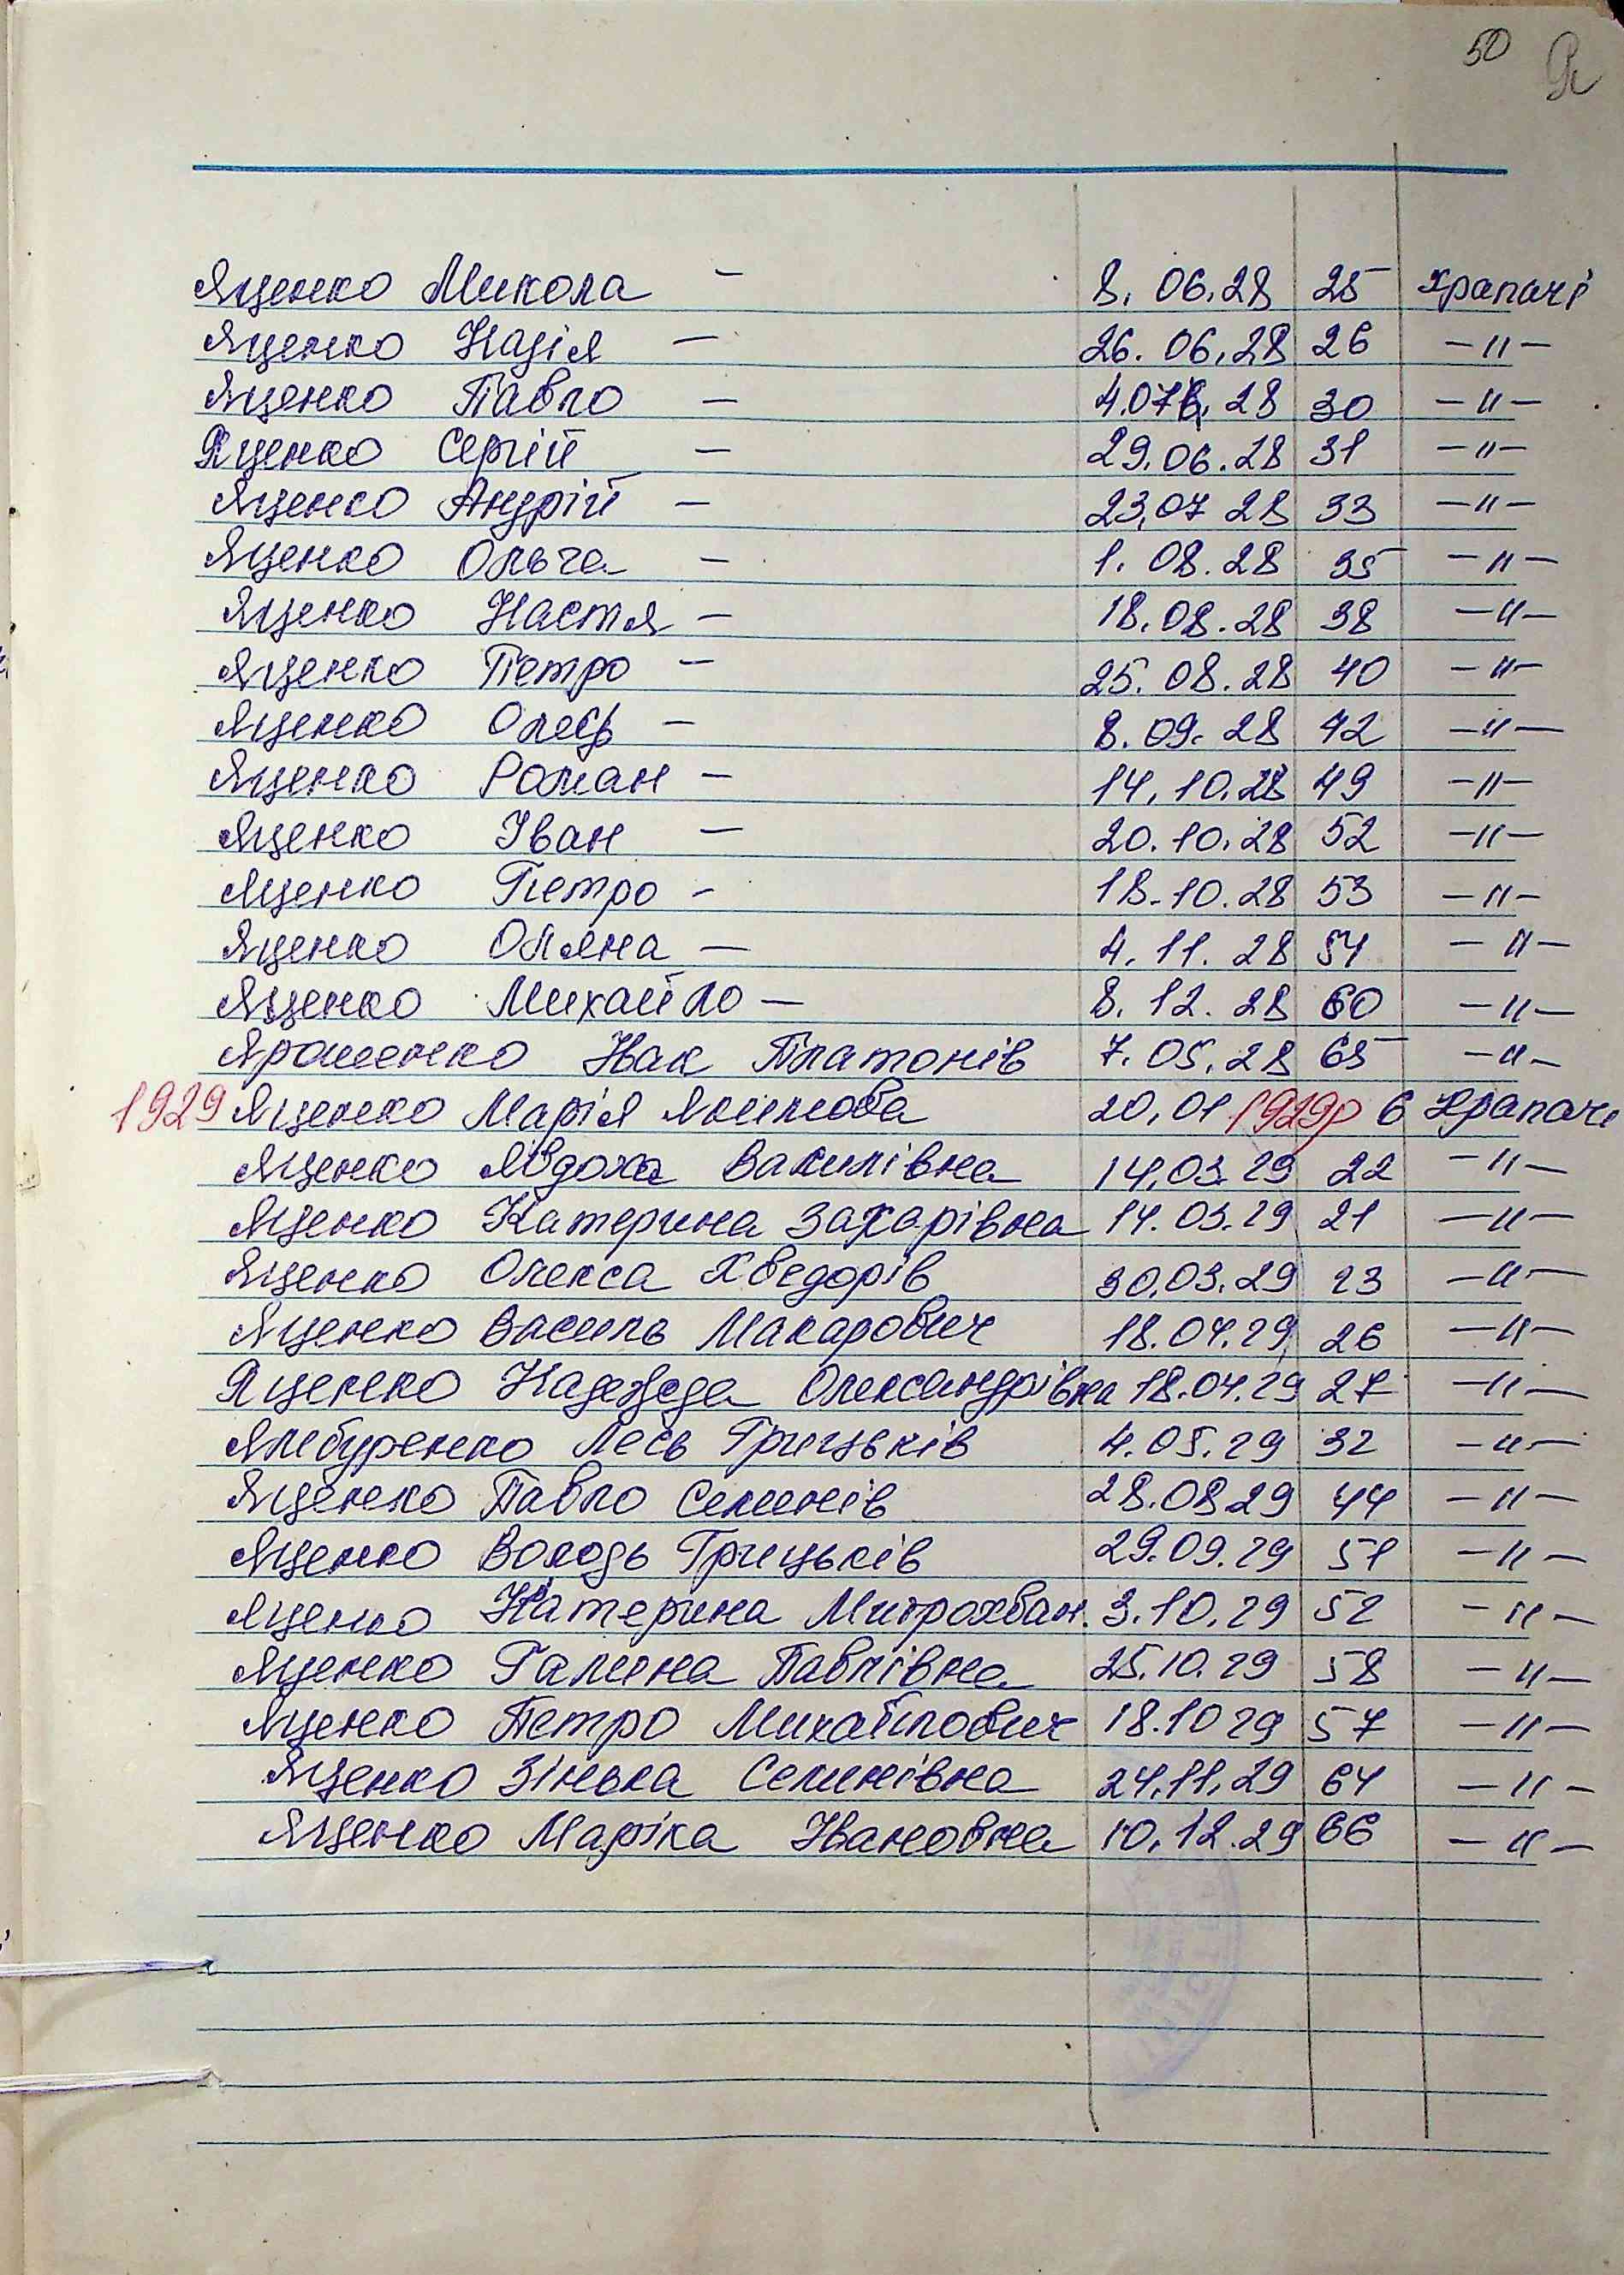 50 Я
Яценко Микола — 8.06.28 25 Храпачі
Яценко Надія — 26.06.28 26 —〃—
Яценко Павло — 28 30 —〃—
Яценко Сергій — 29.06.28 31 —〃—
Яценко Андрій — 23.07 28 33 —〃—
Яценко Ольга — 1.08.28 35 —〃—
Яценко Настя — 18.08.28 38 —〃—
Яценко Петро — 25.08.28 40 —〃—
Яценко — 8.09.28 42 —〃—
Яценко Роман — 14.10.28 49 —〃—
Яценко Іван — 20.10.28 52 —〃—
Яценко Петро — 18.10.28 53 —〃—
Яценко Оляна — 4.11.28 54 —〃—
Яценко Михайло — 8.12.28 60 —〃—
Ярошенко Платонів 7.05.28 65 —〃—
1929 Яценко Марія Якимова 20.01 1929р 6 Храпачі
Яценко Явдоха Василівна 14.03.29 22 —〃—
Яценко Катерина Захарівна 14.03.29 21 —〃—
Яценко Олекса Хведорів 30.03.29 23 —〃—
Яценко Василь Макарович 18.04.29 26 —〃—
Яценко Надежда Олександрівна 18.04.29 27 —〃—
Лесь Грицьків 4.05.29 32 —〃—
Яценко Павло Семенів 28.08.29 44 —〃—
Яценко Володь Грицьків 29.09.29 51 —〃—
Яценко Катерина Митрохван. 3.10.29 52 —〃—
Яценко Галина Павлівна 25.10.29 58 —〃—
Яценко Петро Михайлович 18.10 29 57 —〃—
Яценко Зінька Семенівна 24.11.29 64 —〃—
Яценко Маріка Івановна 10.12.29 66 —〃—